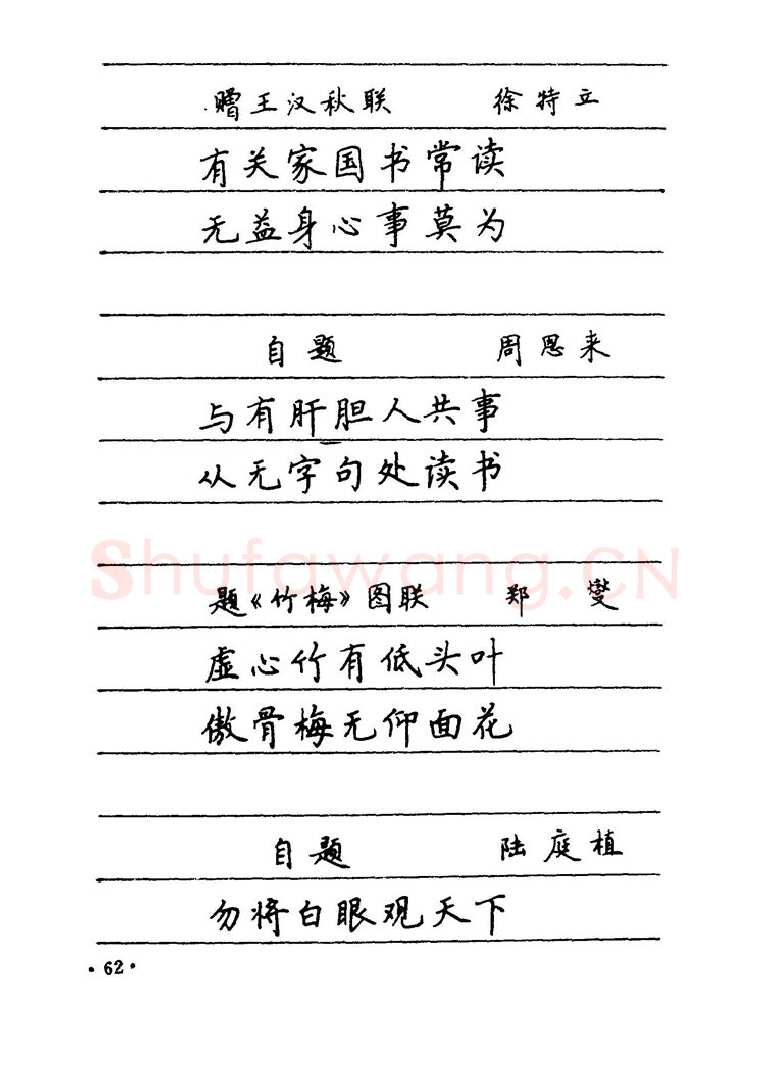 赠王汉秋联 徐特立
有关家国书常读
无益身心事莫为
自题 周恩来
与有肝胆人共事
从无字句处读书
Shufawang.CN
题《竹梅》图联 郑燮
虚心竹有低头叶
傲骨梅无仰面花
自题 陆庭植
勿将白眼观天下
·62·